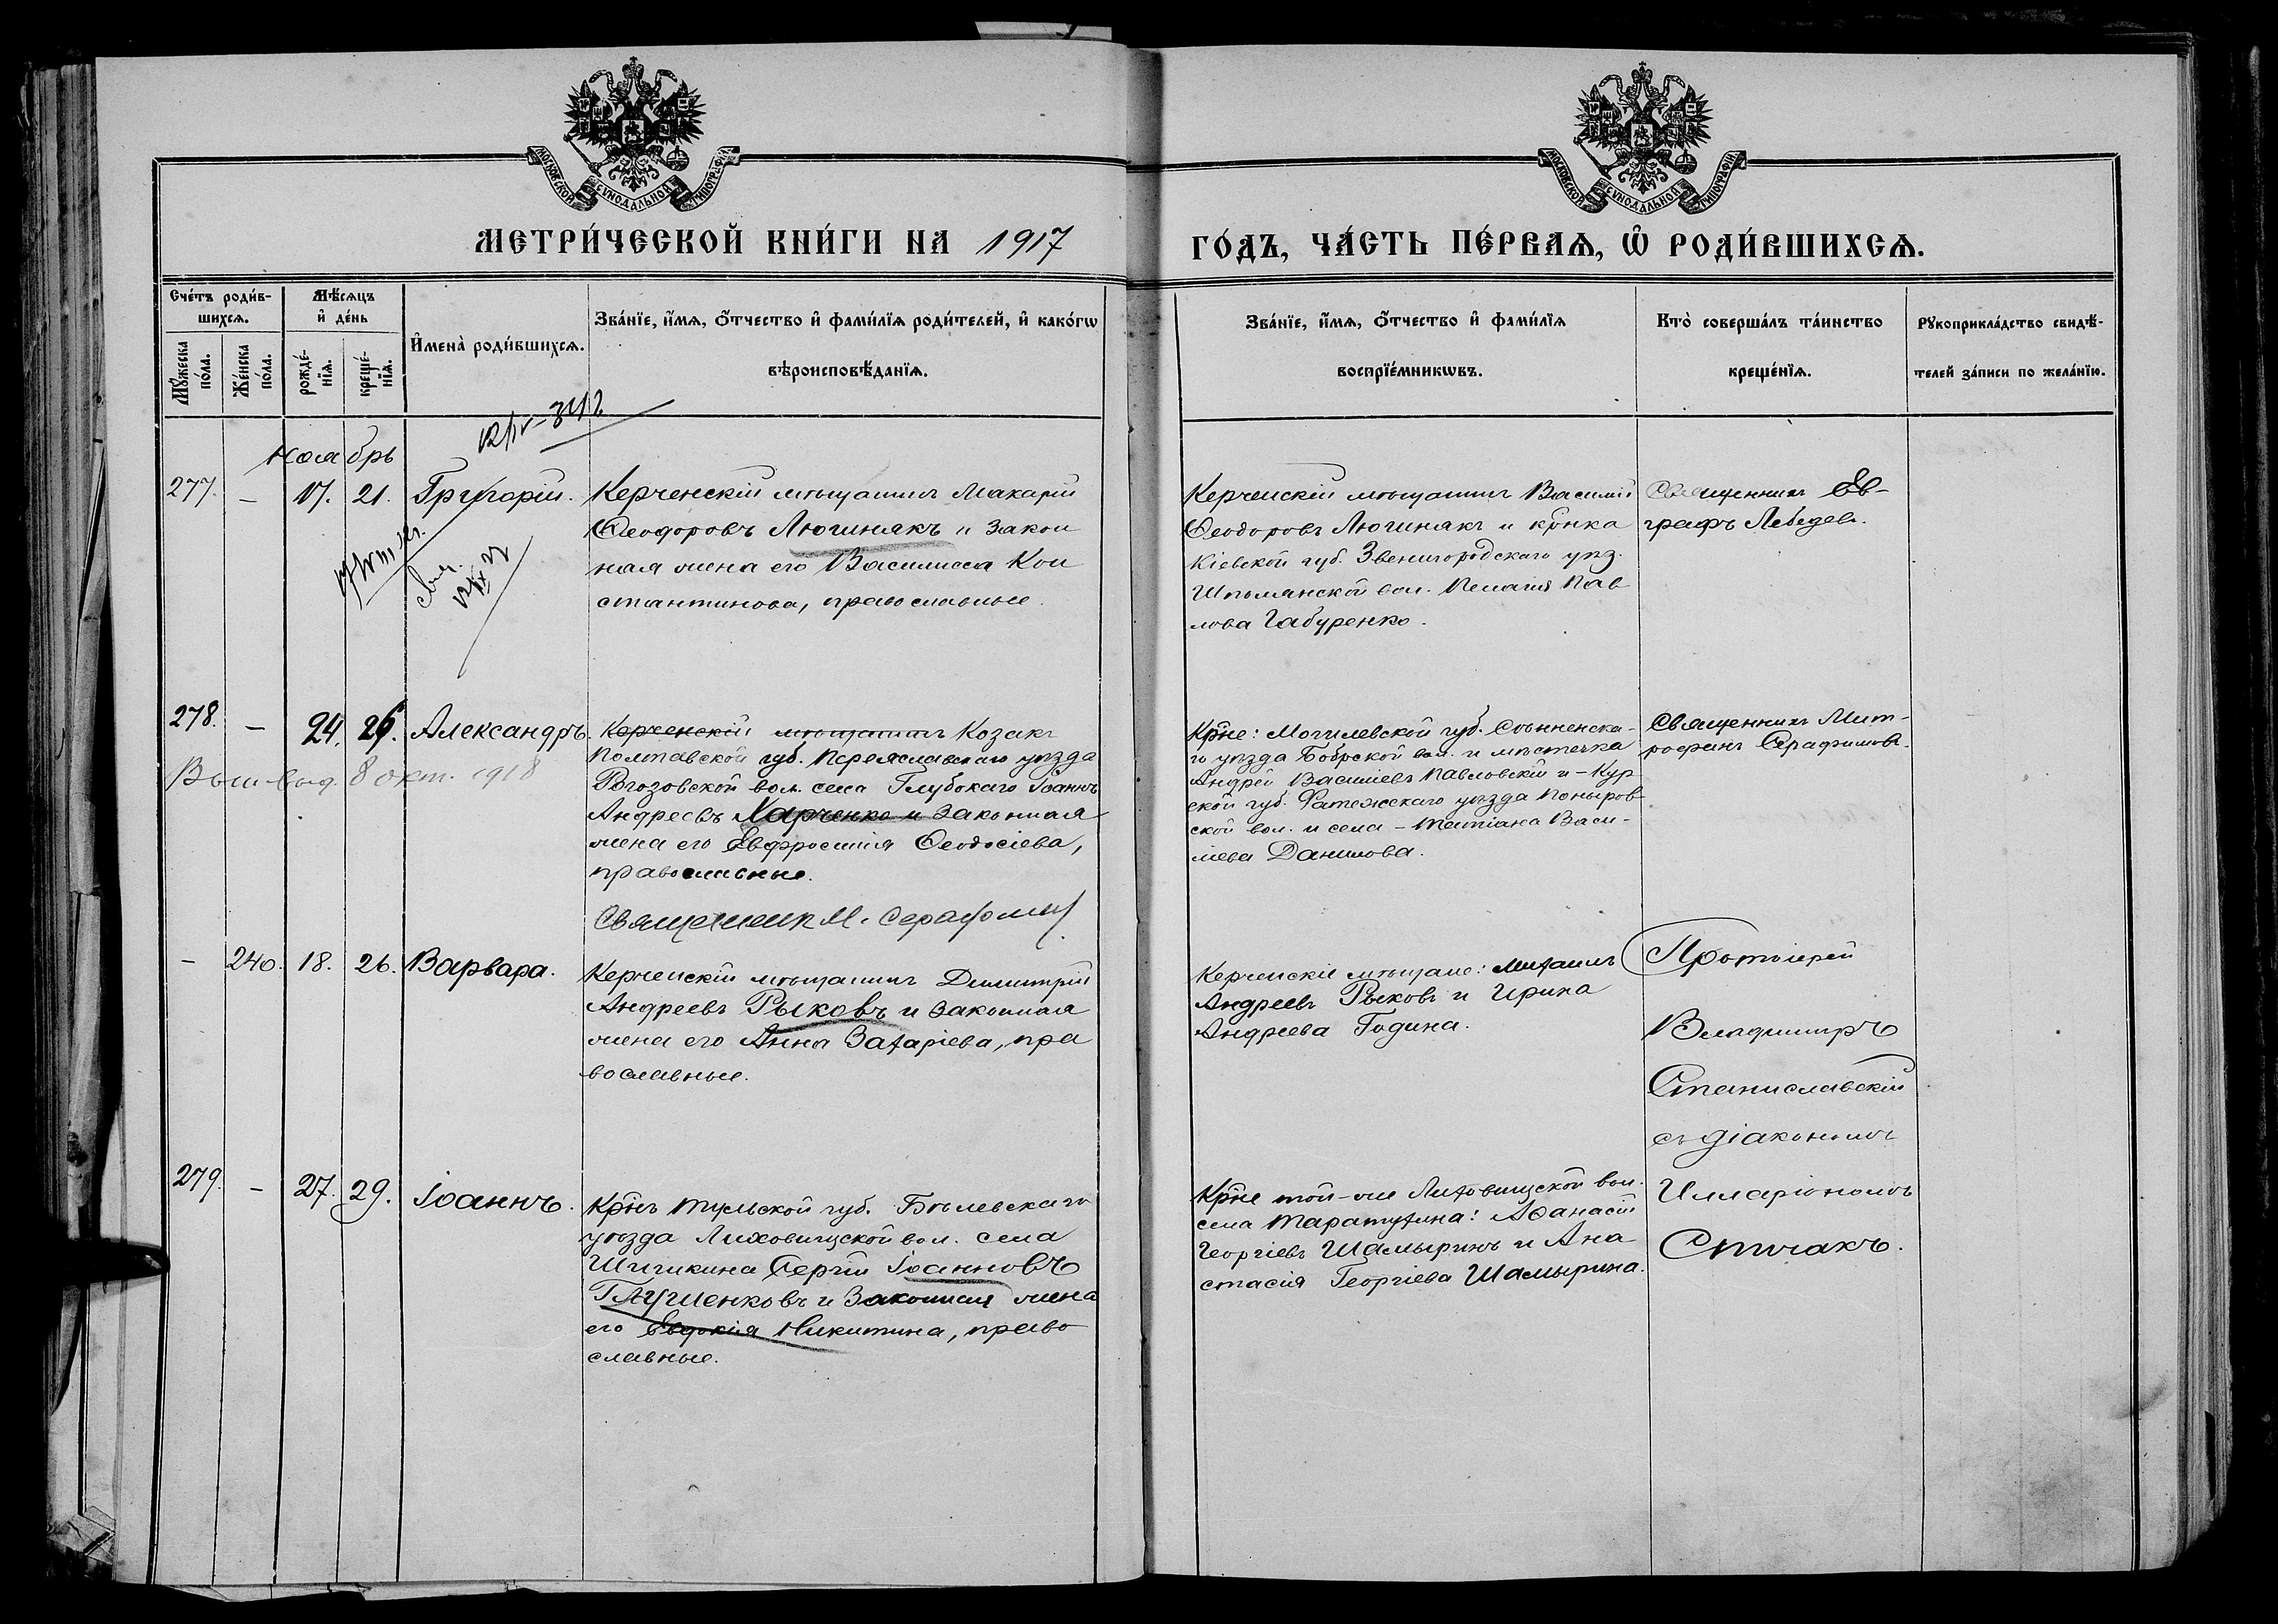 МОСКОВСКОЙ СѴНОДАЛЬНОЙ ТИПОГРАФІИ
МОСКОВСКОЙ СѴНОДАЛЬНОЙ ТИПОГРАФІИ
МЕТРИ́ЧЕСКОЙ КНИ́ГИ НА 1917
ГО́ДЪ, ЧА́СТЬ ПЕ́РВАѦ, Ѡ҆ РОДИ́ВШИХСѦ.
Сче́тъ роди́в-
шихсѧ.
Мꙋ́жеска
по́ла.
Же́нска
по́ла.
Мѣ́сѧцъ
и҆ де́нь
рожде́-
нїѧ.
креще́-
нїѧ.
И҆мена̀ роди́вшихсѧ.
Зва́нїе, и҆́мѧ, ѻ҆́тчество и҆ фами́лїѧ роди́телей, и҆ како́гѡ
вѣроисповѣ́данїѧ.
Зва́нїе, и҆́мѧ, ѻ҆́тчество и҆ фами́лїѧ
воспрїе́мникѡвъ.
Кто̀ соверша́лъ та́инство
креще́нїѧ.
Рꙋкоприкла́дство свидѣ́-
телей за́писи по жела́нїю.
ноябрь
277. – 17. 21. Григорій.
Керченскій мѣщанинъ Макарій
Ѳеодоровъ Люгинякъ и закон
ная жена его Василисса Кон
стантинова, православные.
Керченскій мѣщанинъ Василій
Ѳеодоровъ Люгинякъ и кр̃нка
Кіевской губ. Звенигородскаго уѣз.
Шполянской вол. Пелагія Пав
лова Габуренко.
Священникъ Ев-
графъ Лебедев.
278. – 24. 26. Александръ.
выд. 8 окт. 1918
Керченскій мѣщанинъ Козакъ
Полтавской губ. Переяславскаго уѣзда
Рогозовской вол. села Глубокаго Іоаннъ
Андреевъ Харченко и законная
жена его Евфросинія Ѳеодосіева,
православные.
Священник М. Серафимов
Кр̃не: Могилевской губ. Сѣнненска-
го уѣзда Бобрской вол. и мѣстечка
Андрей Василіевъ Павловскій и – Кур
ской губ. Фатежскаго уѣзда Поныров
ской вол. и села – Татіана Васи-
ліева Данилова.
Священникъ Мит-
рофанъ Серафимов.
– 240. 18. 26. Варвара.
Керченскій мѣщанинъ Димитрій
Андреевъ Рыковъ и законная
жена его Анна Захаріева, пра
вославные.
Керченскіе мѣщане: Михаилъ
Андреевъ Рыковъ и Ирина
Андреева Година.
Протоіерей
Владимиръ
Станиславскій
съ діакономъ
Илларіономъ
Спичакъ.
279. – 27. 29. Іоаннъ.
Кр̃нъ Тульской губ. Бѣлевскаго
уѣзда Лиховищской вол. села
Шишкина Сергій Іоанновъ
Глушенковъ и законная жена
его Евдокія Никитина, право
славные.
Кр̃не той-же Лиховищской вол.
села Таратухина: Аѳанасій
Георгіевъ Шамыринъ и Ана
стасія Георгіева Шамырина.